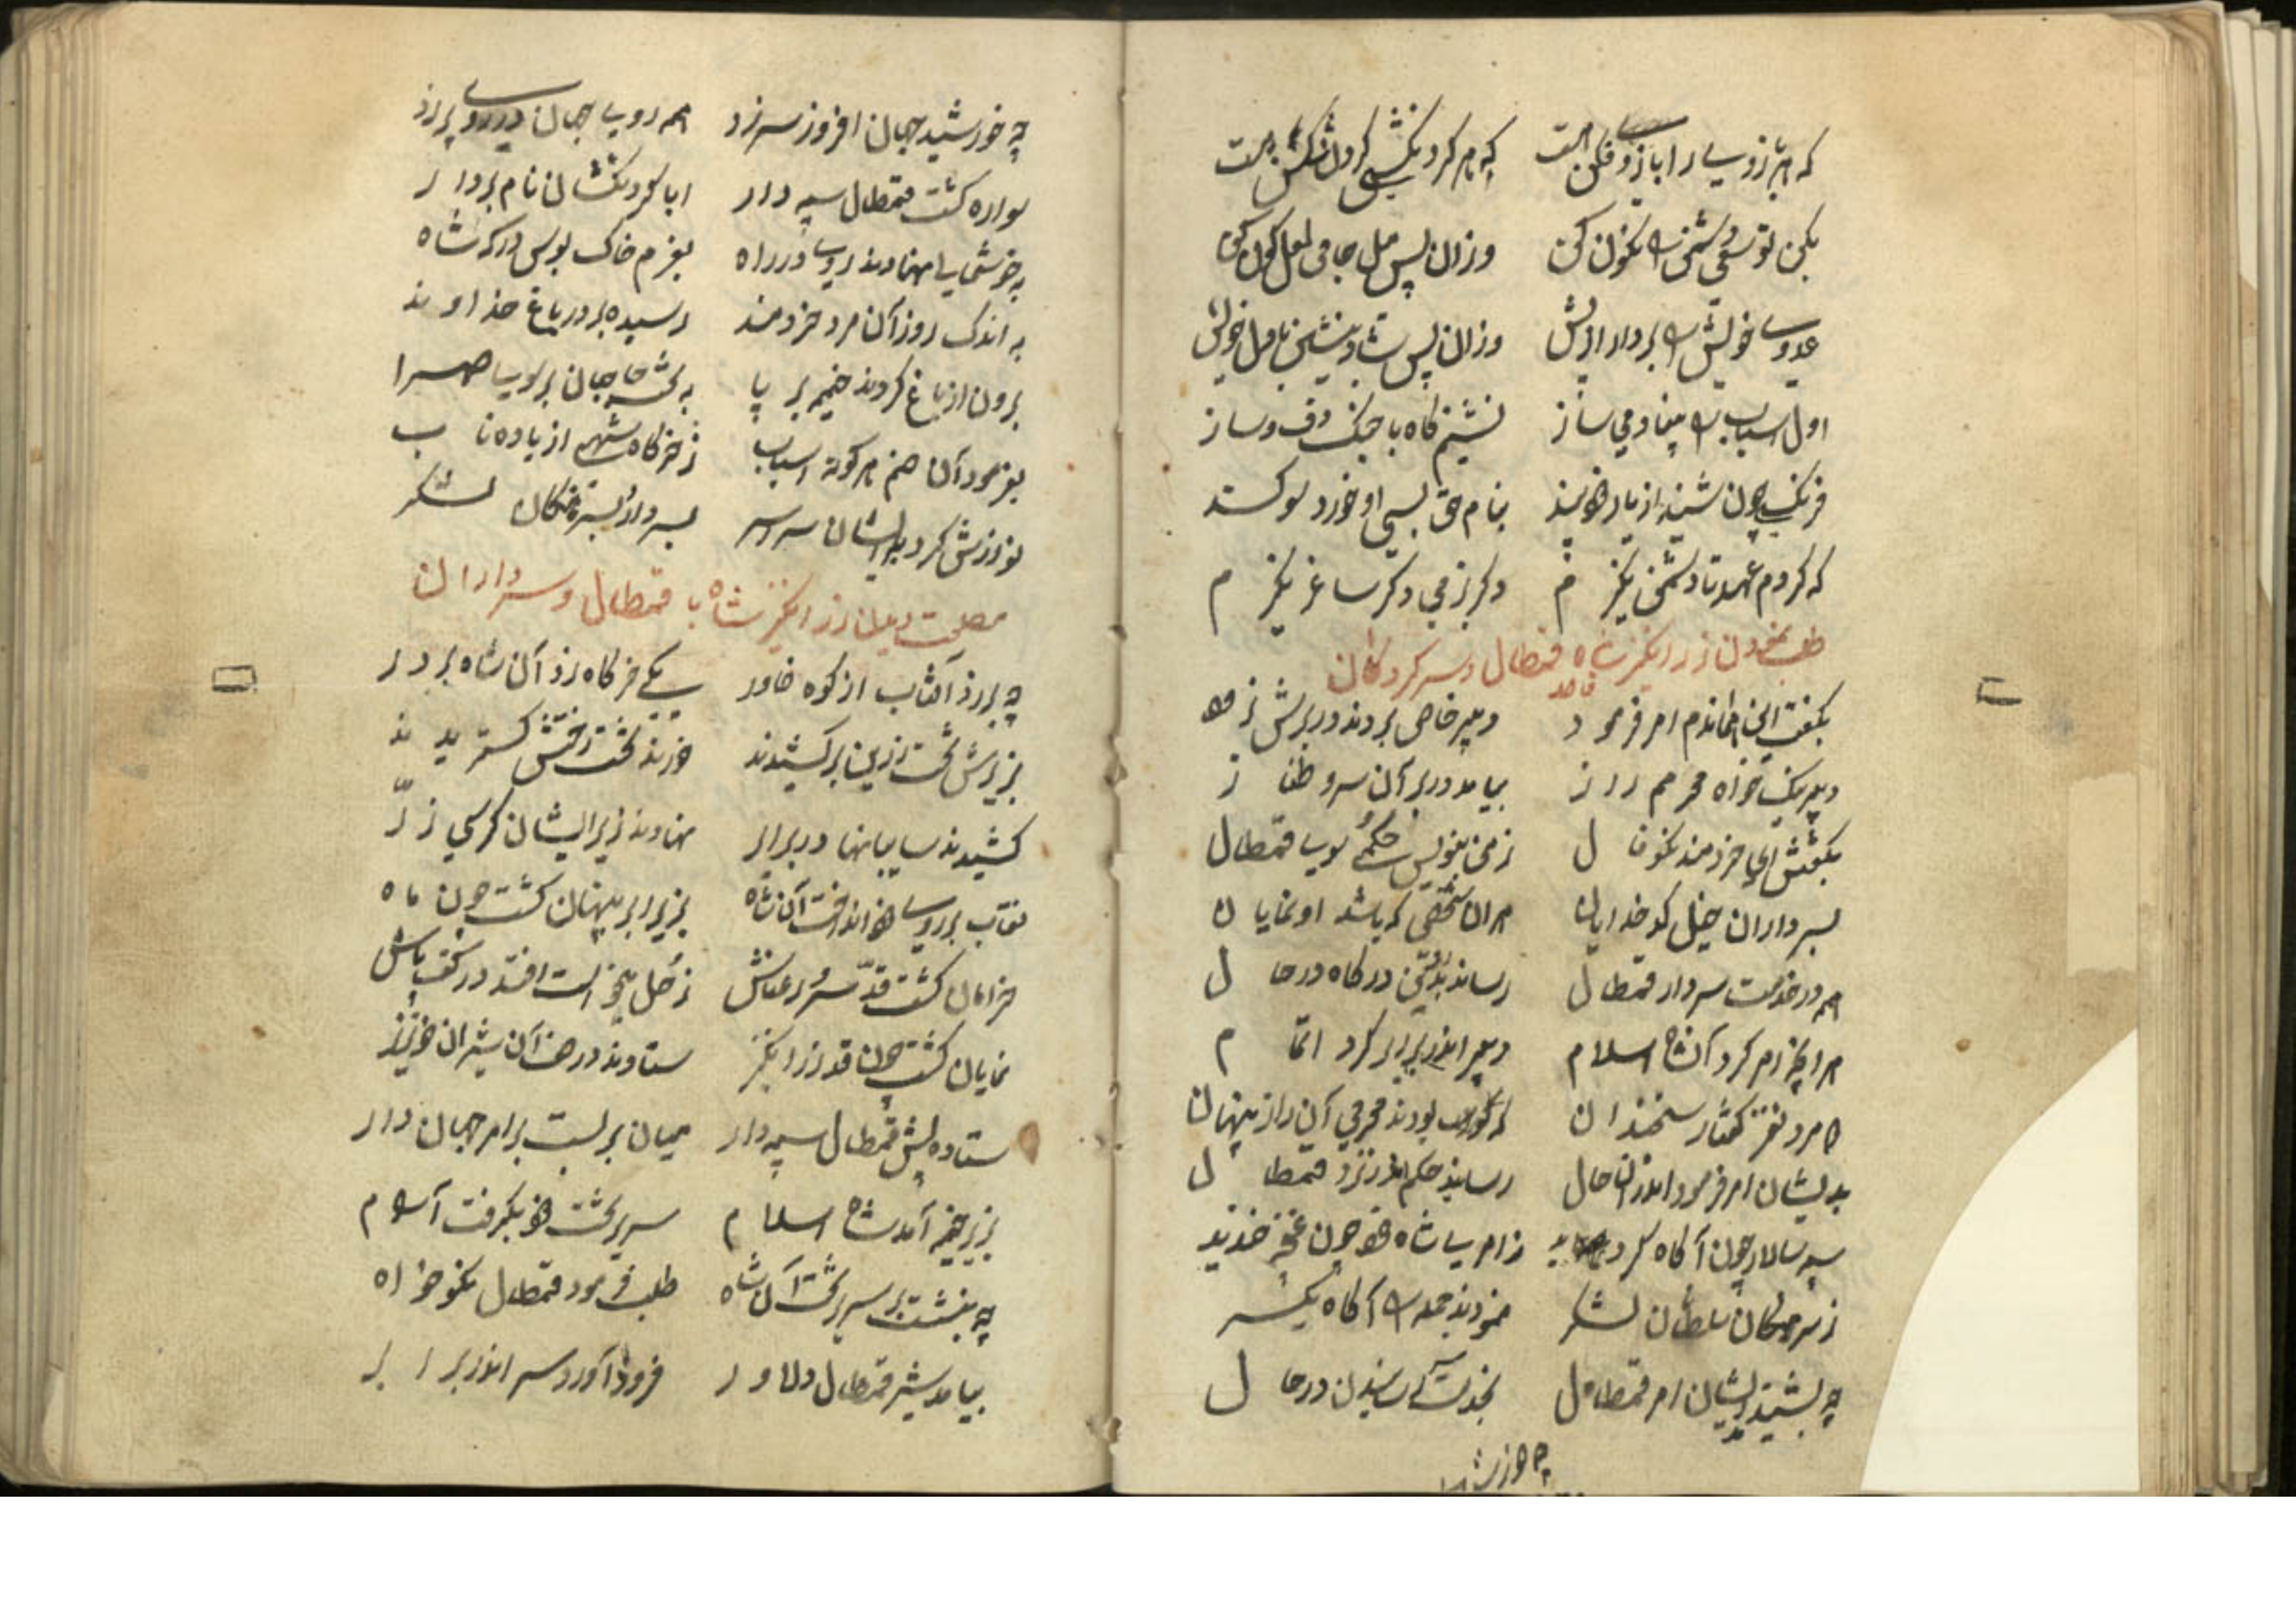 که هر زوی را با زو فکن هست که هر کرد نکشی کردن شکن هست
بکن تو سعی دشمن را نکون کن وزان پس مل جامی لعل کون کن
عدوی خویش را بردار از پیش وزان پس شاد بنشین با مل خویش
اول اسباب را مینا و می ساز نشیم کاه با جنک و دف و ساز
فرنک چون شنید از یار هو پند بنام حق بسی او خورد سوکند
که کردم عهد تا دشمن نکیرم دکر بزمی دکر ساغر نکیرم
طلب نمودن زرانکیز شاه قمطال و سرکردکان
بکفت این خاندم امر فرمود دبیر خاص بردند در برش زود
دبیر نیک خواه محرم راز بیامد در بر آن سرو طناز
بکفتش ای خردمند نکوفال ز من بنویس حکم سوی قمطال
بسرداران خیل کدخدایان هران شخصی که باشد او نمایان
هم در خدمت سردار قمطال رساند بدین درکاه در حال
هرانچه امر کرد آن شاه اسلام دبیر اندر برابر کرد اتمام
دو مرد نغز کفتار سخندان که بودند محرمی آن راز پنهان
بدیشان امر فرمود اندران حال رسانید حکم اندر نزد قمطال
سپه سالار چون آکاه کردید ز امر شاه خود چون غنچه خندید
ز سرهنکان سلطان لشکر نمودند جمله را آکاه یکسر
چه بشنیدند ایشان امر قمطال بخدمت رسیدن در حال
چه خورشید
چه خورشید جهان افروز سر زد همه روی جهان در زر
سواره کشت قمطال سپه دار ابا کردنکشان نام بردار
به خوشی نهادند روی در راه بعزم خاک بوس درکه شاه
به اندک روز آن مرد خردمند رسیده بر در باغ خداوند
برون از باغ کردند خیمه بر پا جهان بر روی صحرا
بفرمود آن هنر هر کونه اسباب ز خرکاه شهم از باده ناب
نوازش کرد بدیشان سراسر بسردار و سرهنکان لشکر
مصلحت دیدن زرانکیز شاه با قمطال و سرداران
چه بر زد آفتاب از کوه خاور یکی خرکاه زد آن شاه بر در
بزیرش تخت زرین برکشیدند تخت رختش کستریدند
کشیدند سایبانها در برابر نهادند زیر ایشان کرسی زر
نقاب بر روی خود انداخت آن شاه بزیر ابر پنهان کشت چون ماه
خرامان کشت قد سرو رعناش زحل میخواست افتد در کف پاش
نمایان کشت چون قد زرانکیز ستادند در صف آن شیران خونریز
ستاده پیش قمطال سپه دار میان بربست بر امر جهان دار
بزیر خیمه آمد شاه اسلام سریر تخت خود بکرفت آرام
چه بنشست بر سریر تخت آن شاه طلب فرمود قمطال نکوخواه
بیامد شیر قمطال دلاور فرود آورد سر اندر برابر